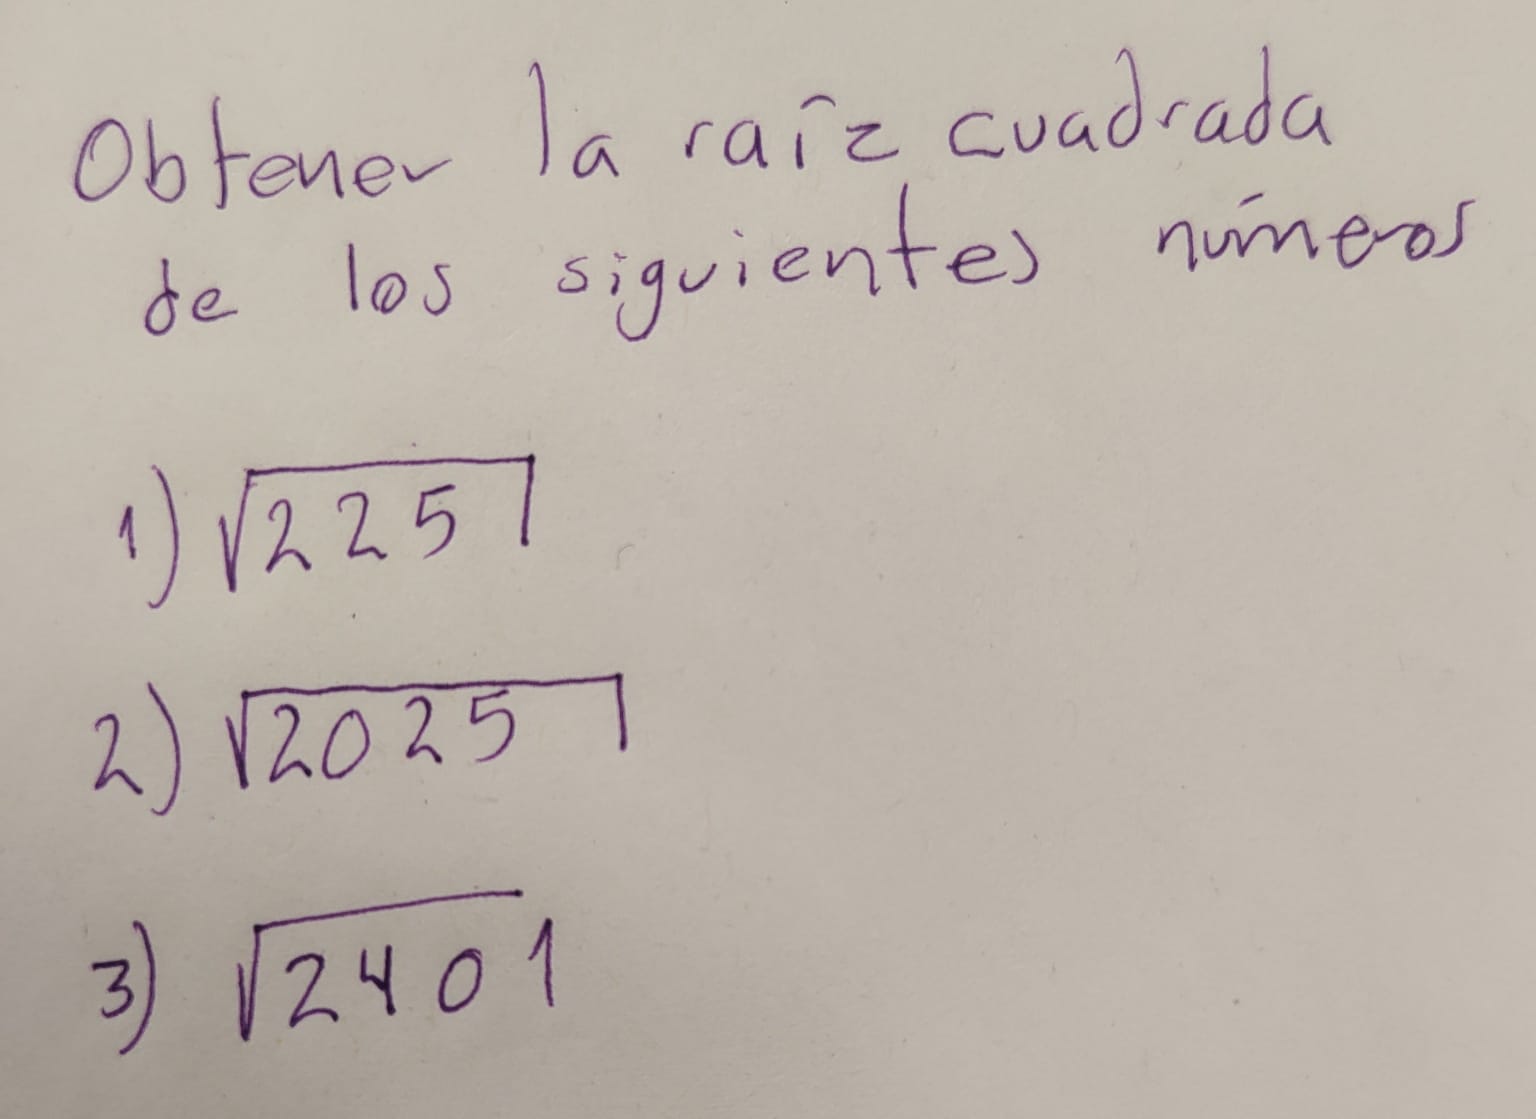 Obtener la raíz cuadrada
de los siguientes números
1) √225
2) √2025
3) √2401